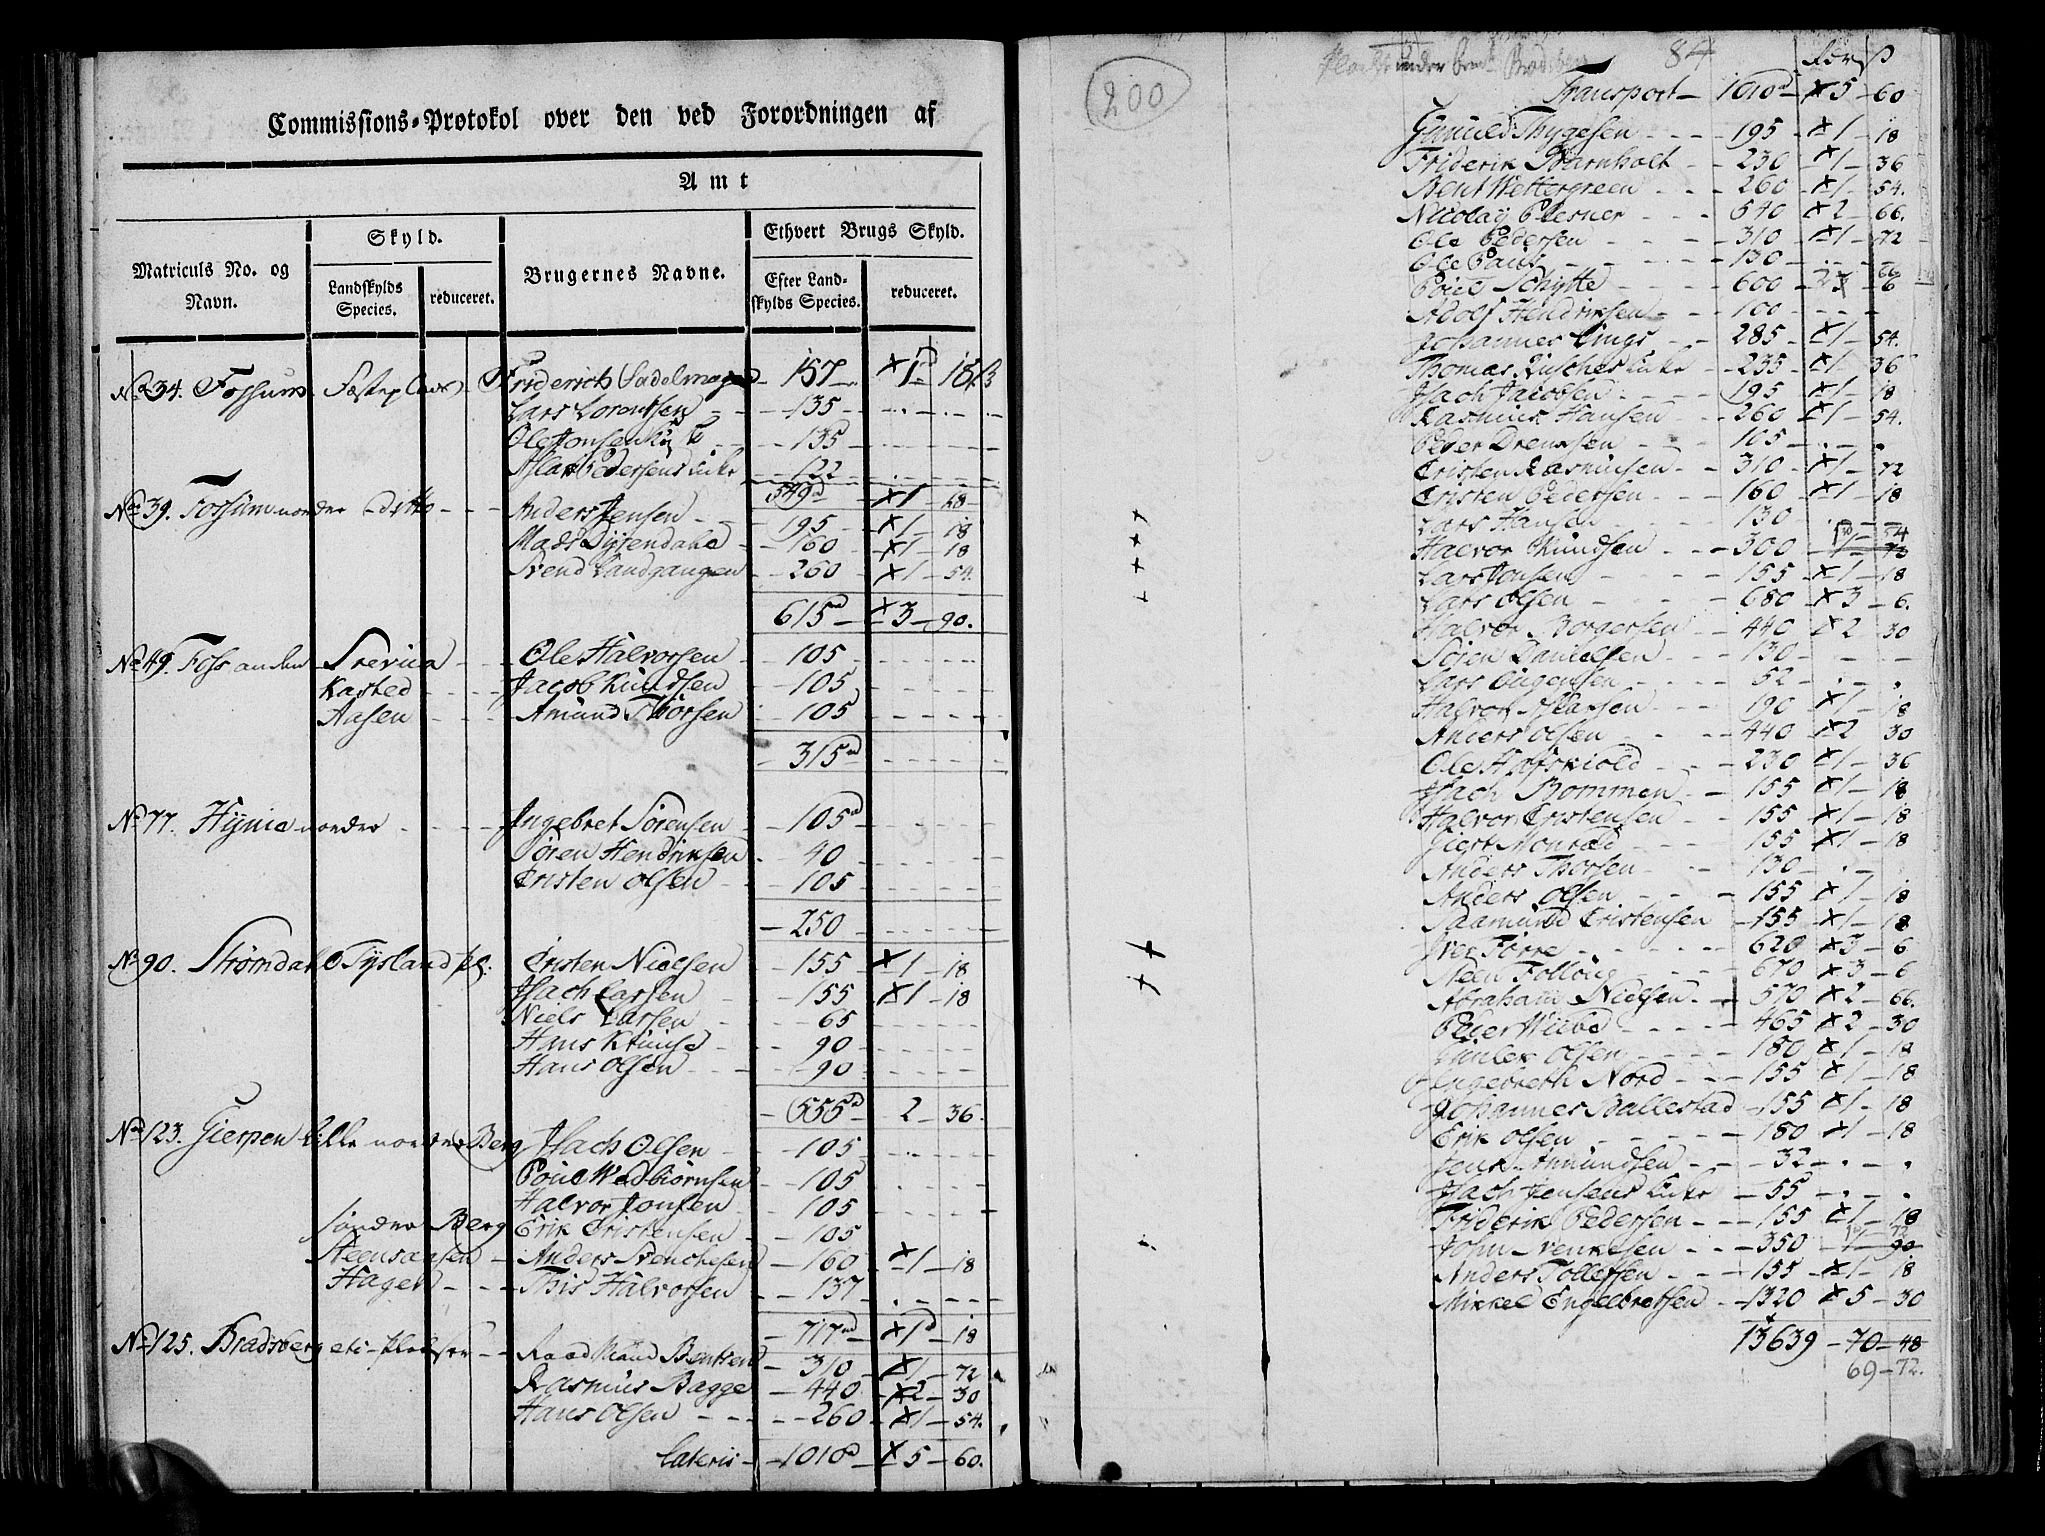 Commissions-Protokol over den ved Forordningen af
Amt
Matriculs No. og Navn.
Skyld.
Landskylds Species.
reduceret.
Brugernes Navne.
Ethvert Brugs Skyld.
Efter Landskylds Species.
reduceret.
No 34. Fossum Fæsteplads Friderich Sadelmager 157 1 18 ß
Lars Lorentsen 135
Ole Jonsen 135
Aslak Pedersens Enke 122
549 1 18
No 39. Fossum nordre ditto Anders Jensen 195 1 18
Mads Dysendahl 160 1 18
Svend Landgangen 260 1 54.
615 3 90.
No 49. Foss anden Ole Halvorsen 105
Kasted Jacob Knudsen 105
Aasen Amund Thorsen 105
315
No 77. Hynie nordre Ingebret Sörensen 105
Sören Hendriksen 40
Cristen Olsen 105
250
No 90. Strömdal Fysland pl. Cristen Nielsen 155 1 18
Isach Larsen 155 1 18
Niels Larsen 65
Hans Kruuse 90
Hans Olsen 90
555 2 36.
No 123. Gierpen Lille nordre Berg Isach Olsen 105
Poul Wedbiörnsen 105
Halvor Jonsen 105
söndre Berg Erik Cristensen 105
Steensaasen Anders Svenchesen 160 1 18
Hagen This Halvorsen 137
717 1 18
No 125. Bradsberg ets pladser Raadmand Bentzen 310 1 72
Rasmus Bagge 440 2 30
Hans Olsen 260 1 54.
Lateris 1010 5 60.
200
84
ß
Transport 1010 5 60
Gunuld Thygesen 195 1 18
Friderik Barnholt 230 1 36
Bent Wettergreen 260 1 54.
Nicolay Plesner 540 2 66.
Ole Pedersen 310 1 72
Ole Paus 130
Poul Schytte 600 2
Adolf Hendriksen 100
Johannes Lings 285 1 54.
Thomas Enke 235 1 36
Isach Jacobsen 195 1 18
Rasmus Hansen 260 1 54.
Peder Drengsen 105
Cristen Rasmusen 310 1 72
Cristen Pedersen 160 1 18
Lars Hansen 130
Halvor Knudsen 300 1 54
Lars Jonsen 155 1 18
Lars Olsen 680 3 6.
Halvor Borgersen 440 2 30
Sören Danielsen 130
Lars 52
Halvor Aslaksen 190 1 18
Anders Olsen 440 2 30
Ole Hafskiold 230 1 36
Isach Bommen 155 1 18
Halvor Cristensen 155 1 18
Giert Monrad 155 1 18
Anders Thorsen 130
Anders Olsen 155 1 18
Saamund Cristensen 155 1 18
Iver Torre 620 3 6
Steen Follong 670 3 6
Abraham Nielsen 570 2 66.
Peder Wiibe 465 2 30
Gunlek Olsen 180 1 18
Ingebreth Nord 155 1 18
Johannes Ballestad 155 1 18
Erik Olsen 180 1 18
Jens Amundsen 32
Isach Jensens Enke 55
Friderik Pedersen 155 1 18
John Svenkesen 350 1 90
Anders Tollefsen 155 1 18
Mikkel Engelbretsen 1320 5 30
13639 70 48
69 72.